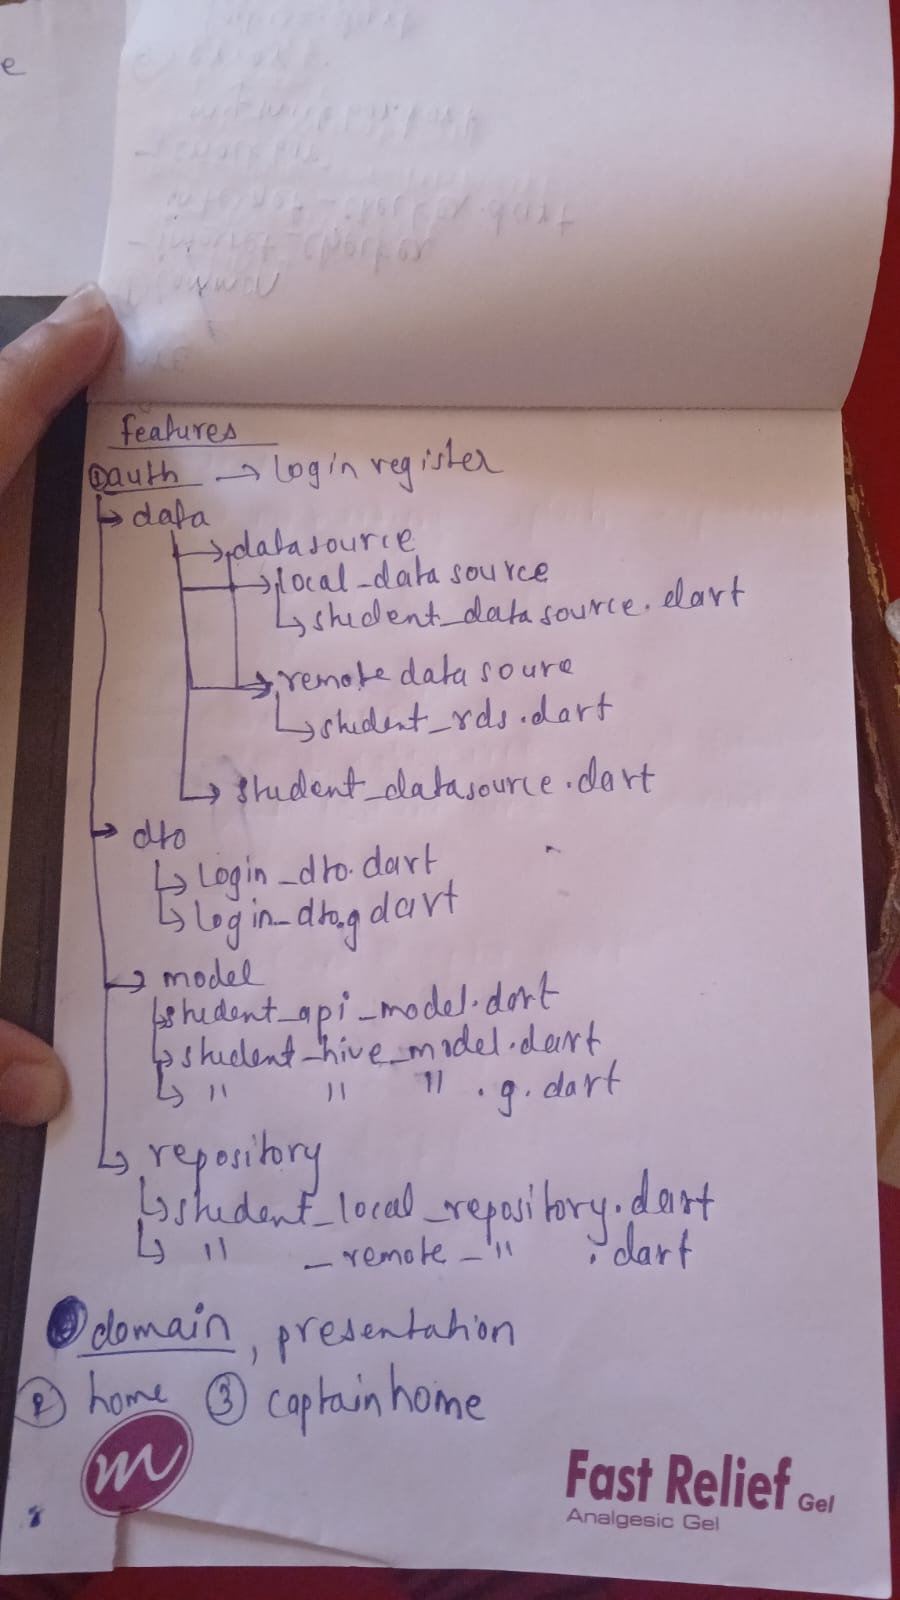 e
features
① auth → login register
→ data
→ datasource
→ local_datasource
↳ student_datasource.dart
→ remote datasoure
↳ student_rds.dart
↳ student_datasource.dart
→ dto
↳ login_dto.dart
↳ login_dto.g dart
→ model
↳ student_api_model.dart
↳ student_hive_model.dart
↳ " " " .g.dart
↳ repository
↳ student_local_repository.dart
↳ " _remote_" .dart
domain, presentation
② home ③ captainhome
m
Fast Relief Gel
Analgesic Gel